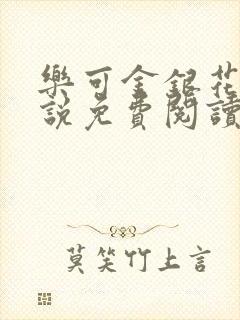 樂可金銀花
說免費閱讀
莫笑竹上言